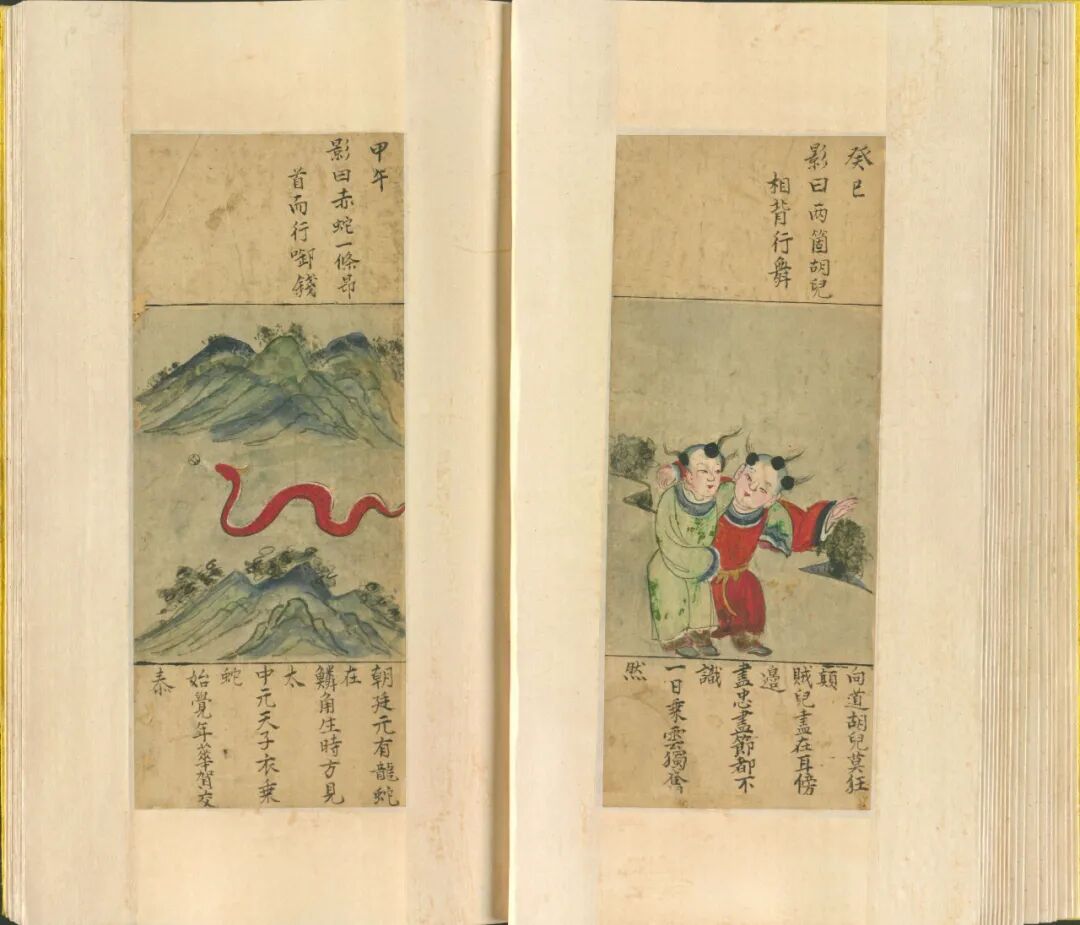 癸巳
影曰两箇胡兒
相背行舞
向道胡兒莫狂
顛
賊兒盡在耳傍
邊
盡忠盡節都不
識
一日乘雲獨奮
然
甲午
影曰赤蛇一條昂
首而行啣錢
朝廷元有龍蛇
在
鱗角生時方見
太
中元天子衣乘
蛇
始覺年華賀交
泰